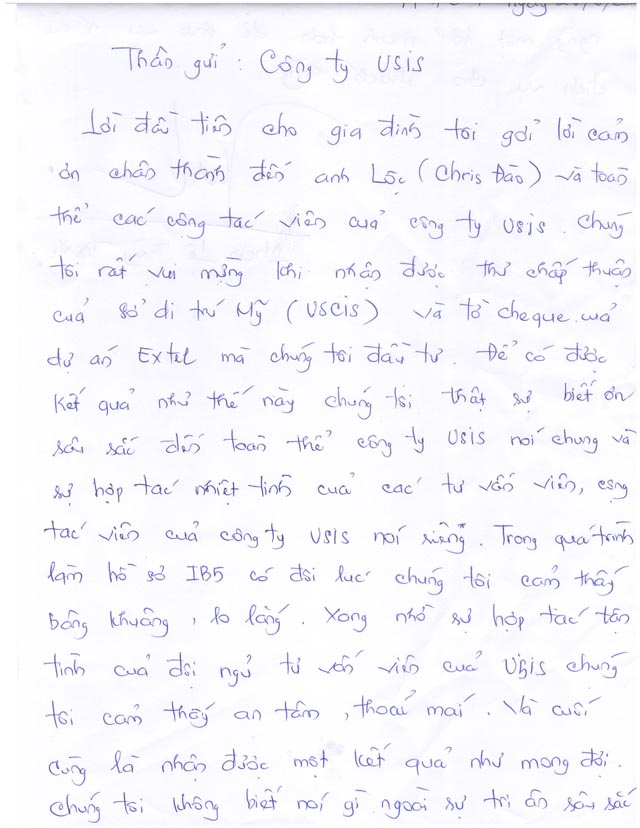 ngày
Thân gửi : Công ty USIS
Lời đầu tiên cho gia đình tôi gởi lời cảm
ơn chân thành đến anh Lộc (Chris Đào) và toàn
thể các công tác viên của công ty USIS. Chúng
tôi rất vui mừng khi nhận được thư chấp thuận
của sở di trú Mỹ (USCIS) và tờ cheque của
dự án Extel mà chúng tôi đầu tư. Để có được
kết quả như thế này chúng tôi thật sự biết ơn
sâu sắc đến toàn thể công ty USIS nói chung và
sự hợp tác nhiệt tình của các tư vấn viên, cộng
tác viên của công ty USIS nói riêng. Trong quá trình
làm hồ sơ IB5 có đôi lúc chúng tôi cảm thấy
bâng khuâng, lo lắng. Xong nhờ sự hợp tác tận
tình của đội ngủ tư vấn viên của USIS chúng
tôi cảm thấy an tâm, thoải mái. Và cuối
cùng là nhận được một kết quả như mong đợi.
Chúng tôi không biết nói gì ngoài sự tri ân sâu sắc